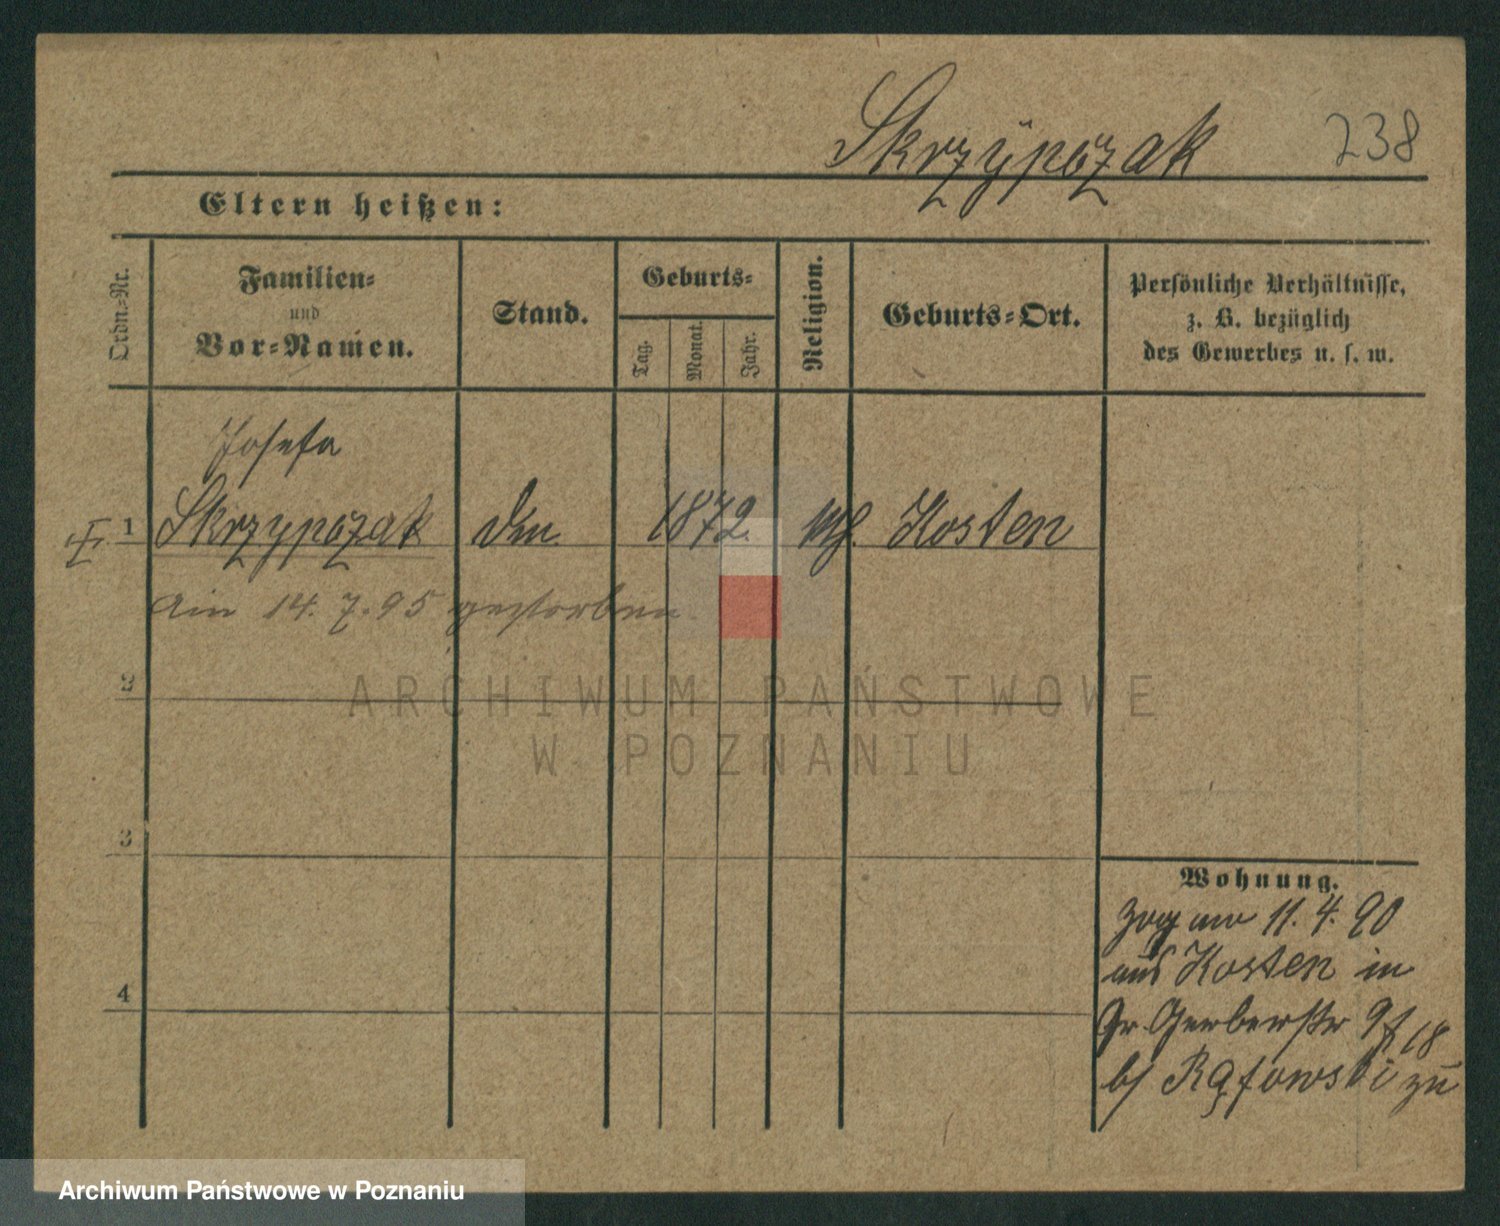 Skrzypczak 238
Eltern heißen:
Ordn.-Nr.
Familien-
und
Vor-Namen.
Stand.
Geburts-
Tag.
Monat.
Jahr.
Religion.
Geburts-Ort.
Persönliche Verhältnisse,
z. B. bezüglich
des Gewerbes u. s. w.
Josefa
1 Skrzypczak 1872. Kosten
Am 14. 7. 95 gestorben
2
ARCHIWUM PAŃSTWOWE
W POZNANIU
3
Wohnung.
Zog am 11. 4. 90
aus Kosten in
4
Gr. Gerberstr 18
bj zu
Archiwum Państwowe w Poznaniu